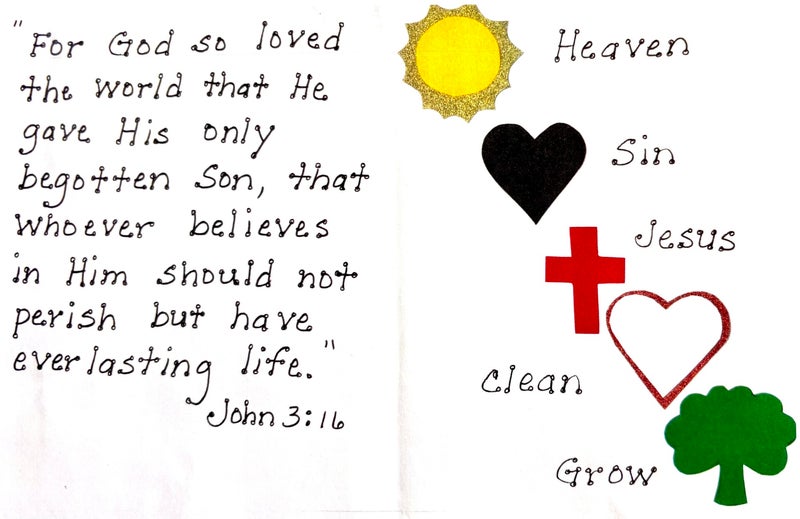 "For God so loved
the world that He
gave His only
begotten Son, that
whoever believes
in Him should not
perish but have
everlasting life."
John 3:16
Heaven
Sin
Jesus
clean
Grow